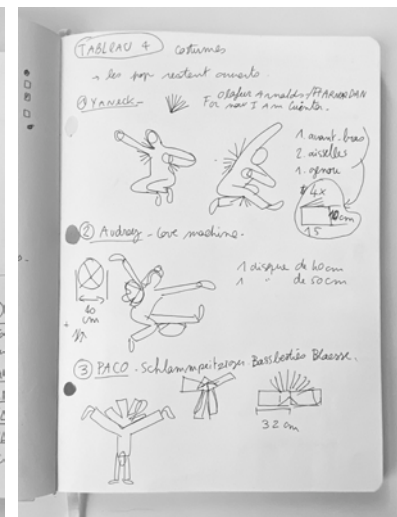 TABLEAU 4 costumes
les pop restent ouverts.
① YANECK -
Olafur Arnalds /
For now I Am Winter.
1. avant-bras
2. aisselles
1. genou
4x
10cm
15
② Audrey - Love machine.
1 disque de 40cm
1 " de 50cm
40
cm
③ PACO - Schlammpeitziger. Bassbeuties Blaesse.
32 cm